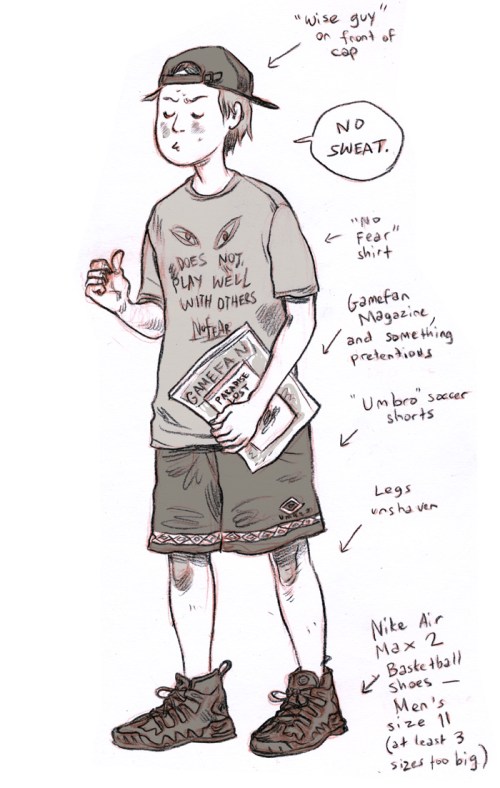 "wise guy"
on front of
cap
NO
SWEAT.
"No
Fear"
shirt
DOES NOT
PLAY WELL
WITH OTHERS
NoFEAR
Gamefan
Magazine,
and something
pretentious
GAMEFAN
PARADISE
LOST
"Umbro" soccer
shorts
UMBRO
Legs
unshaven
Nike Air
Max 2
Basketball
shoes —
Men's
size 11
(at least 3
sizes too big)